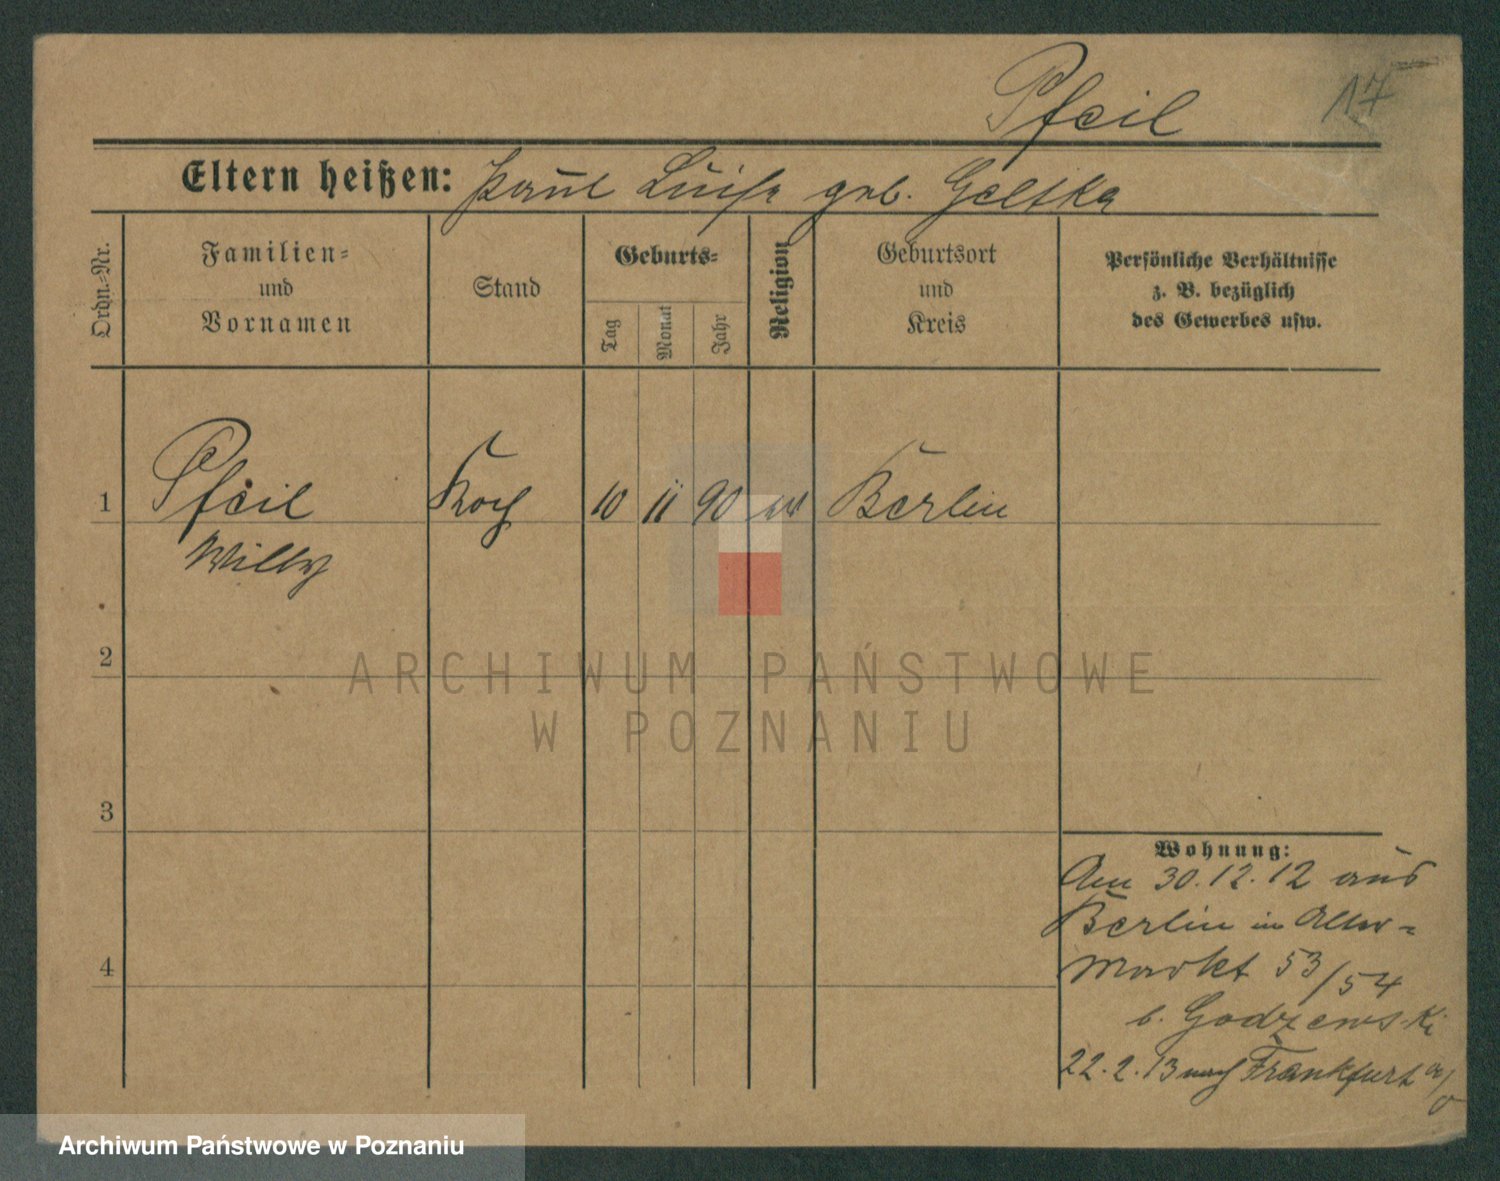 Pfeil 17
Eltern heißen: Paul Luise geb.
Ordn.-Nr.
Familien-
und
Vornamen
Stand
Geburts-
Tag
Monat
Jahr
Religion
Geburtsort
und
Kreis
Persönliche Verhältnisse
z. B. bezüglich
des Gewerbes usw.
1 Pfeil Koch 10 11 90 ev Berlin
Willy
2
3
4
Wohnung:
Am 30.12.12 aus
Berlin in Alter-
markt 53/54
b. Godzewski
22.2.13 nach Frankfurt a/O
ARCHIWUM PAŃSTWOWE
W POZNANIU
Archiwum Państwowe w Poznaniu